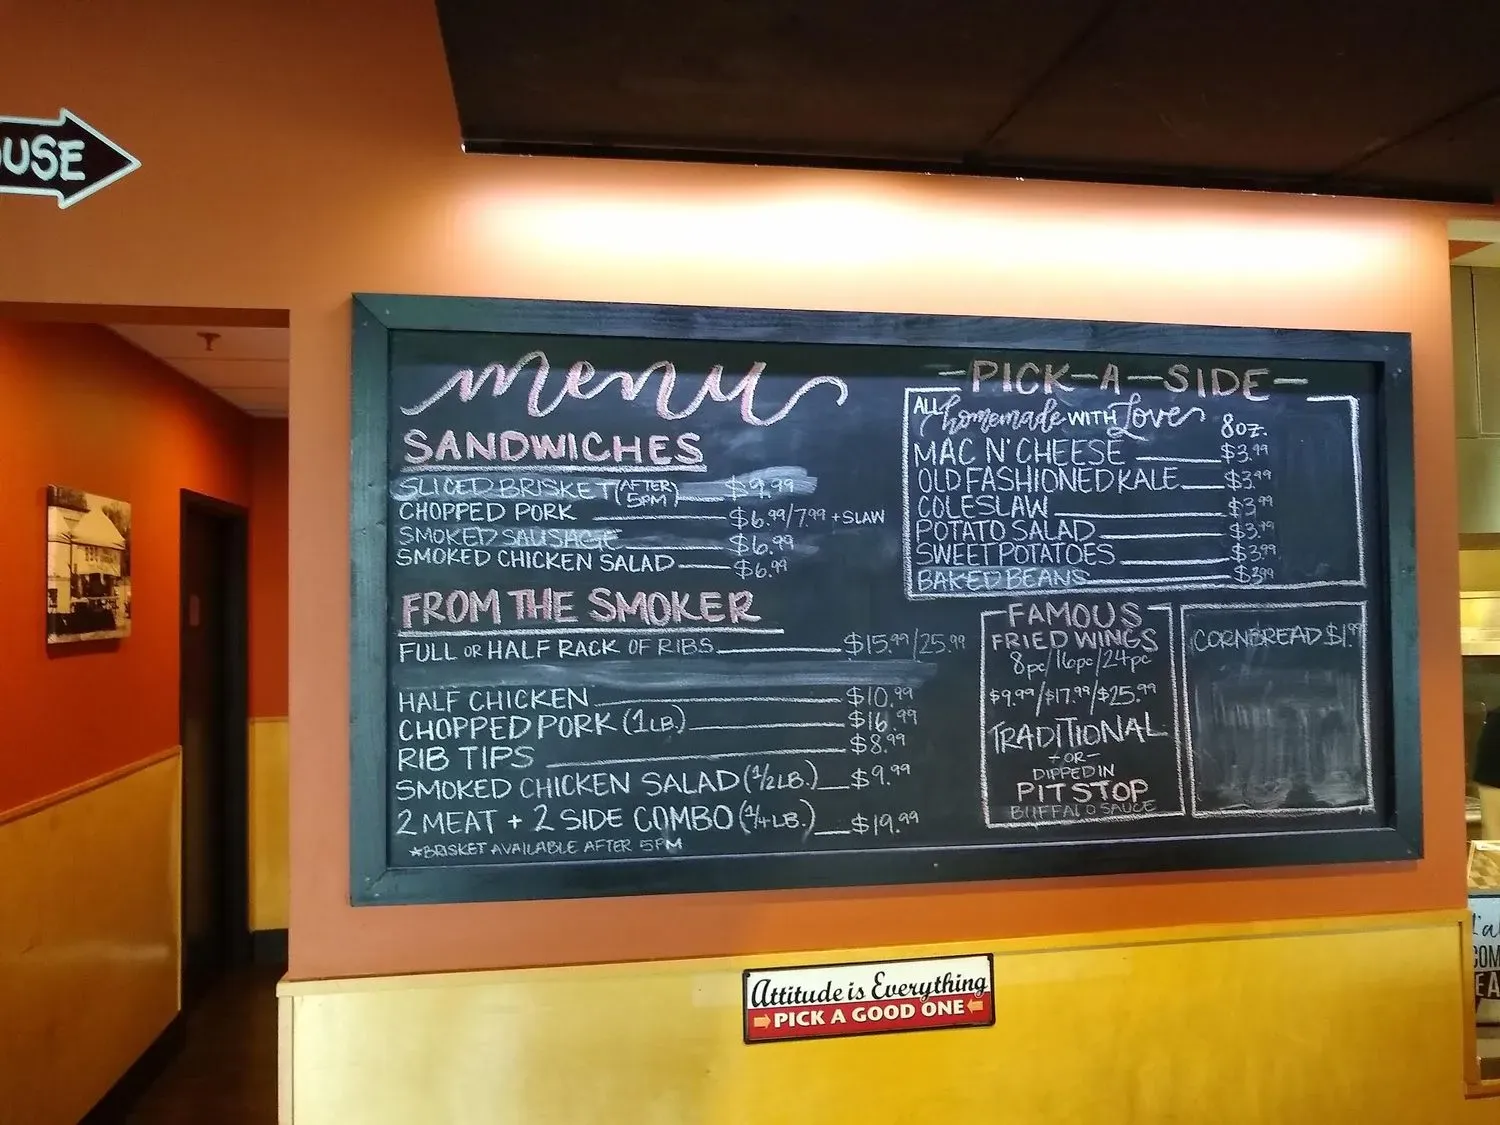 OUSE
menu
SANDWICHES
SLICED BRISKET (AFTER 5PM) $9.99
CHOPPED PORK $6.99/7.99 + SLAW
SMOKED SAUSAGE $6.99
SMOKED CHICKEN SALAD $6.99
FROM THE SMOKER
FULL OR HALF RACK OF RIBS $15.99/25.99
HALF CHICKEN $10.99
CHOPPED PORK (1LB.) $16.99
RIB TIPS $8.99
SMOKED CHICKEN SALAD (1/2LB.) $9.99
2 MEAT + 2 SIDE COMBO (1/4LB.) $19.99
*BRISKET AVAILABLE AFTER 5PM
-PICK-A-SIDE-
ALL homemade WITH Love
8oz.
MAC N' CHEESE $3.99
OLD FASHIONED KALE $3.99
COLESLAW $3.99
POTATO SALAD $3.99
SWEET POTATOES $3.99
BAKED BEANS $3.99
FAMOUS
FRIED WINGS
8pc/16pc/24pc
$9.99/$17.99/$25.99
TRADITIONAL
-OR-
DIPPED IN
PIT STOP
BUFFALO SAUCE
CORNBREAD $1.99
Attitude is Everything
PICK A GOOD ONE